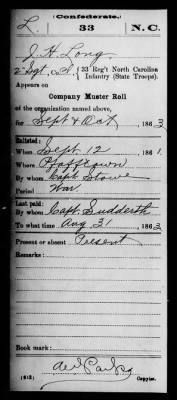 (Confederate.)
L. 33 N.C.
J. H. Long
2 Sgt, Co. 33 Reg't North Carolina
Infantry (State Troops).
Appears on
Company Muster Roll
of the organization named above,
for Sept & Oct, 186
Enlisted:
When Sept 12, 186 1.
Where Pfafftown
By whom Capt. Stowe
Period War
Last paid:
By whom Capt. Sudderth
To what time Aug 31, 186
Present or absent Present
Remarks:
Book mark:
(642)
Copyist.